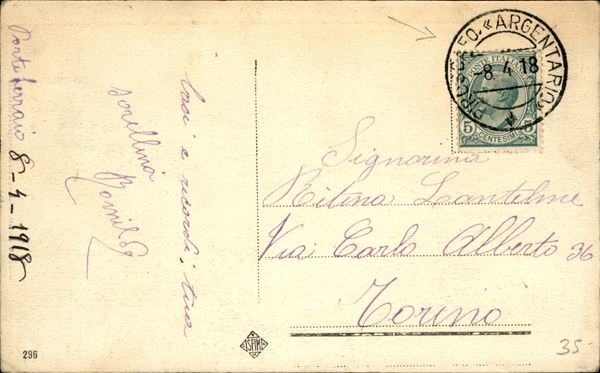 Portoferraio 8-4-1918
baci e ricordi, tua
sorellina
PIROSCAFO. «ARGENTARIO»
8.4.18
POSTE ITALIANE
5 CENTESIMI 5
Signorina
Ritina Lantelme
Via Carlo Alberto 36
Torino
296
35-